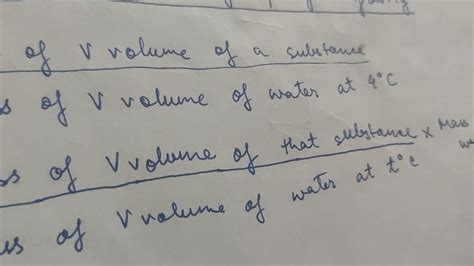 of V volume of a substance
of V volume of water at 4°C
of V volume of that substance × Mass
of V volume of water at t°C